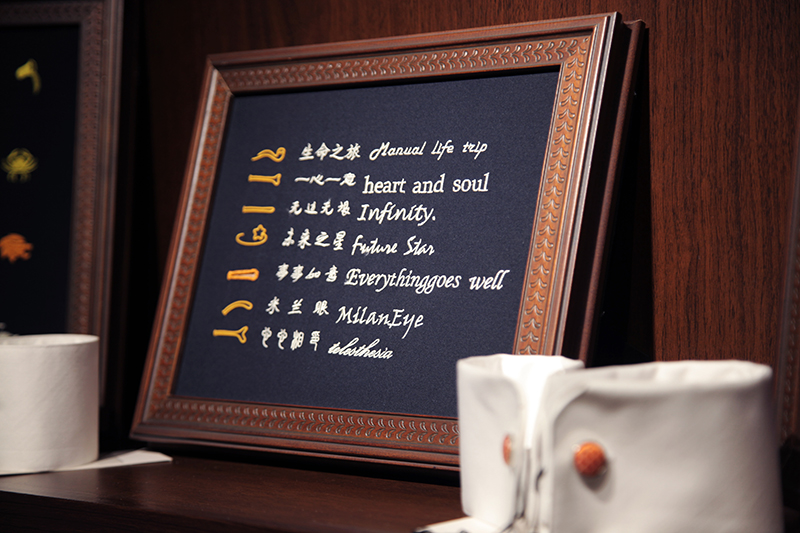 生命之旅 Manual life trip
一心一意 heart and soul
无边无垠 Infinity.
未来之星 Future Star
事事如意 Everythinggoes well
米兰眼 Milan,Eye
心心相印 telesthesia